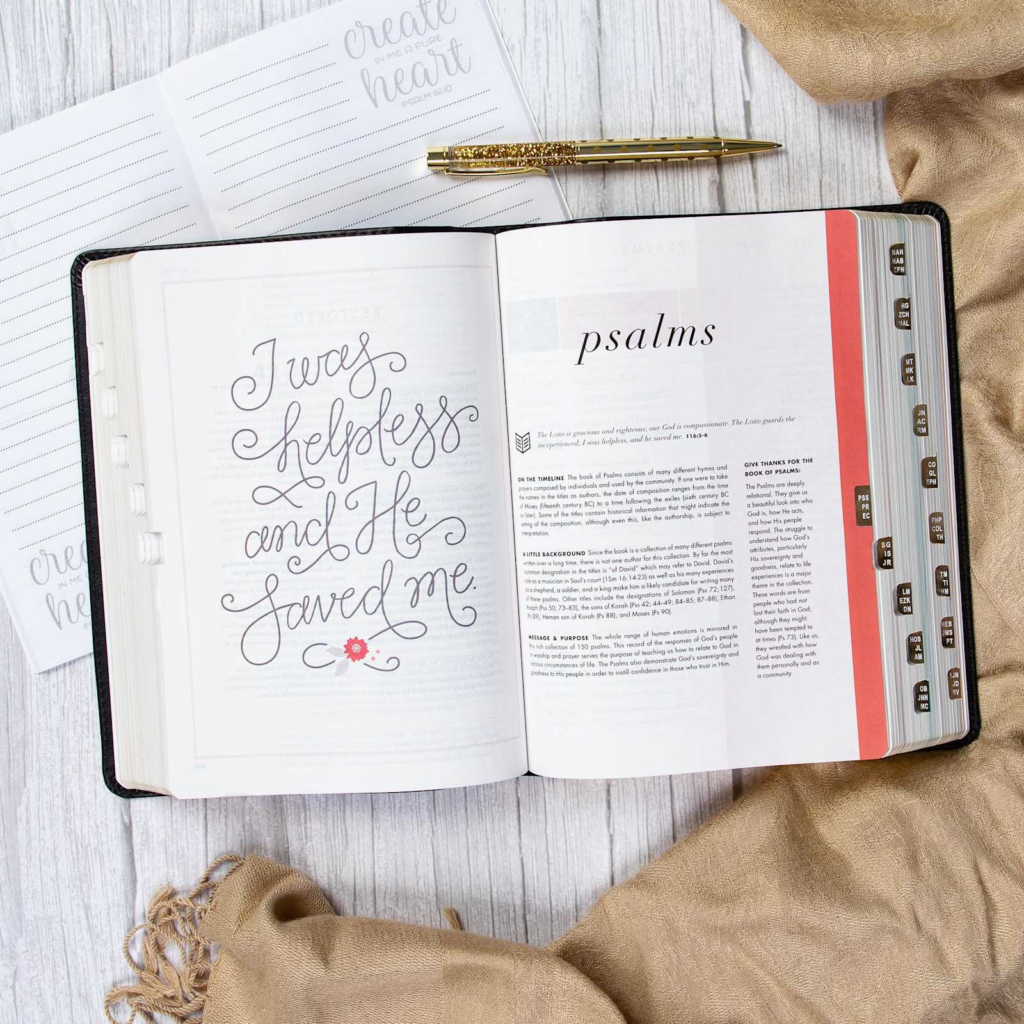 create
IN ME A PURE
heart
PSALM 51:10
I was
helpless
and He
saved me.
psalms
The LORD is gracious and righteous; our God is compassionate. The LORD guards the
inexperienced; I was helpless, and he saved me. 116:5-6
ON THE TIMELINE The book of Psalms consists of many different hymns and
prayers composed by individuals and used by the community. If one were to take
the names in the titles as authors, the date of composition ranges from the time
of Moses (fifteenth century BC) to a time following the exiles (sixth century BC
or later). Some of the titles contain historical information that might indicate the
setting of the composition, although even this, like the authorship, is subject to
interpretation.
A LITTLE BACKGROUND Since the book is a collection of many different psalms
written over a long time, there is not one author for this collection. By far the most
common designation in the titles is "of David" which may refer to David. David's
role as a musician in Saul's court (1Sm 16:14-23) as well as his many experiences
as a shepherd, a soldier, and a king make him a likely candidate for writing many
of these psalms. Other titles include the designations of Solomon (Pss 72; 127),
Asaph (Pss 50; 73–83), the sons of Korah (Pss 42; 44–49; 84–85; 87–88), Ethan
(Ps 89), Heman son of Korah (Ps 88), and Moses (Ps 90).
MESSAGE & PURPOSE The whole range of human emotions is mirrored in
this rich collection of 150 psalms. This record of the responses of God's people
in worship and prayer serves the purpose of teaching us how to relate to God in
various circumstances of life. The Psalms also demonstrate God's sovereignty and
goodness to His people in order to instill confidence in those who trust in Him.
GIVE THANKS FOR THE
BOOK OF PSALMS:
The Psalms are deeply
relational. They give us
a beautiful look into who
God is, how He acts,
and how His people
respond. The struggle to
understand how God's
attributes, particularly
His sovereignty and
goodness, relate to life
experiences is a major
theme in the collection.
These words are from
people who had not
lost their faith in God,
although they might
have been tempted to
at times (Ps 73). Like us,
they wrestled with how
God was dealing with
them personally and as
a community.
NAH
HAB
ZPH
HG
ZCH
MAL
MT
MK
LK
JN
AC
RM
CO
GL
EPH
PSS
PR
EC
PHP
COL
TH
SG
IS
JR
TM
TI
HM
LM
EZK
DN
HEB
JMS
PT
HOS
JL
AM
JN
JD
RV
OB
JNH
MC